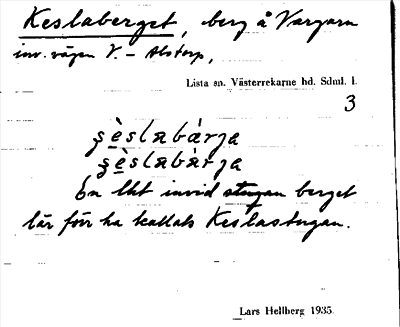 Keslaberget, berg å Vargarn
inv. vägen V. – Alstorp,
Lista sn. Västerrekarne hd. Sdml. l.
3
ʂèslabárja
ʂèslabàrja
En lht invid stugan berget
lär förr ha kallats Keslastugan.
Lars Hellberg 1935